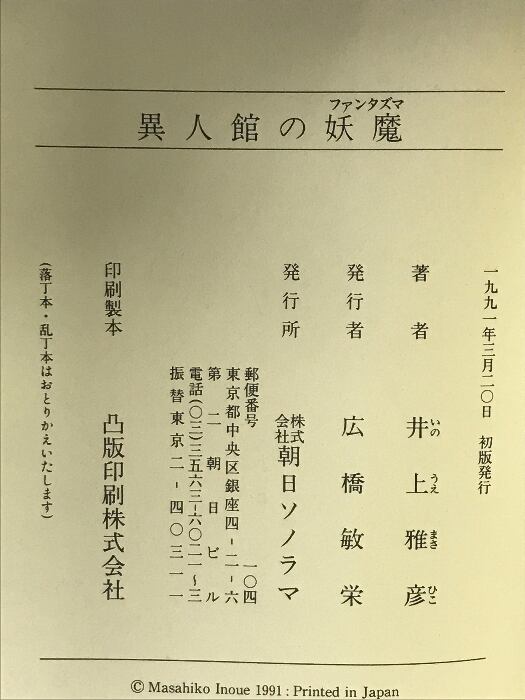 ファンタズマ
異人館の妖魔
一九九一年三月二〇日 初版発行
著者 井上雅彦
いのうえまさひこ
発行者 広橋敏栄
発行所 株式会社朝日ソノラマ
郵便番号 一〇四
東京都中央区銀座四-二-六
第二朝日ビル
電話(〇三)三五六三-六〇二一~三
振替東京二-四〇三一一
印刷製本 凸版印刷株式会社
(落丁本・乱丁本はおとりかえいたします)
© Masahiko Inoue 1991 : Printed in Japan